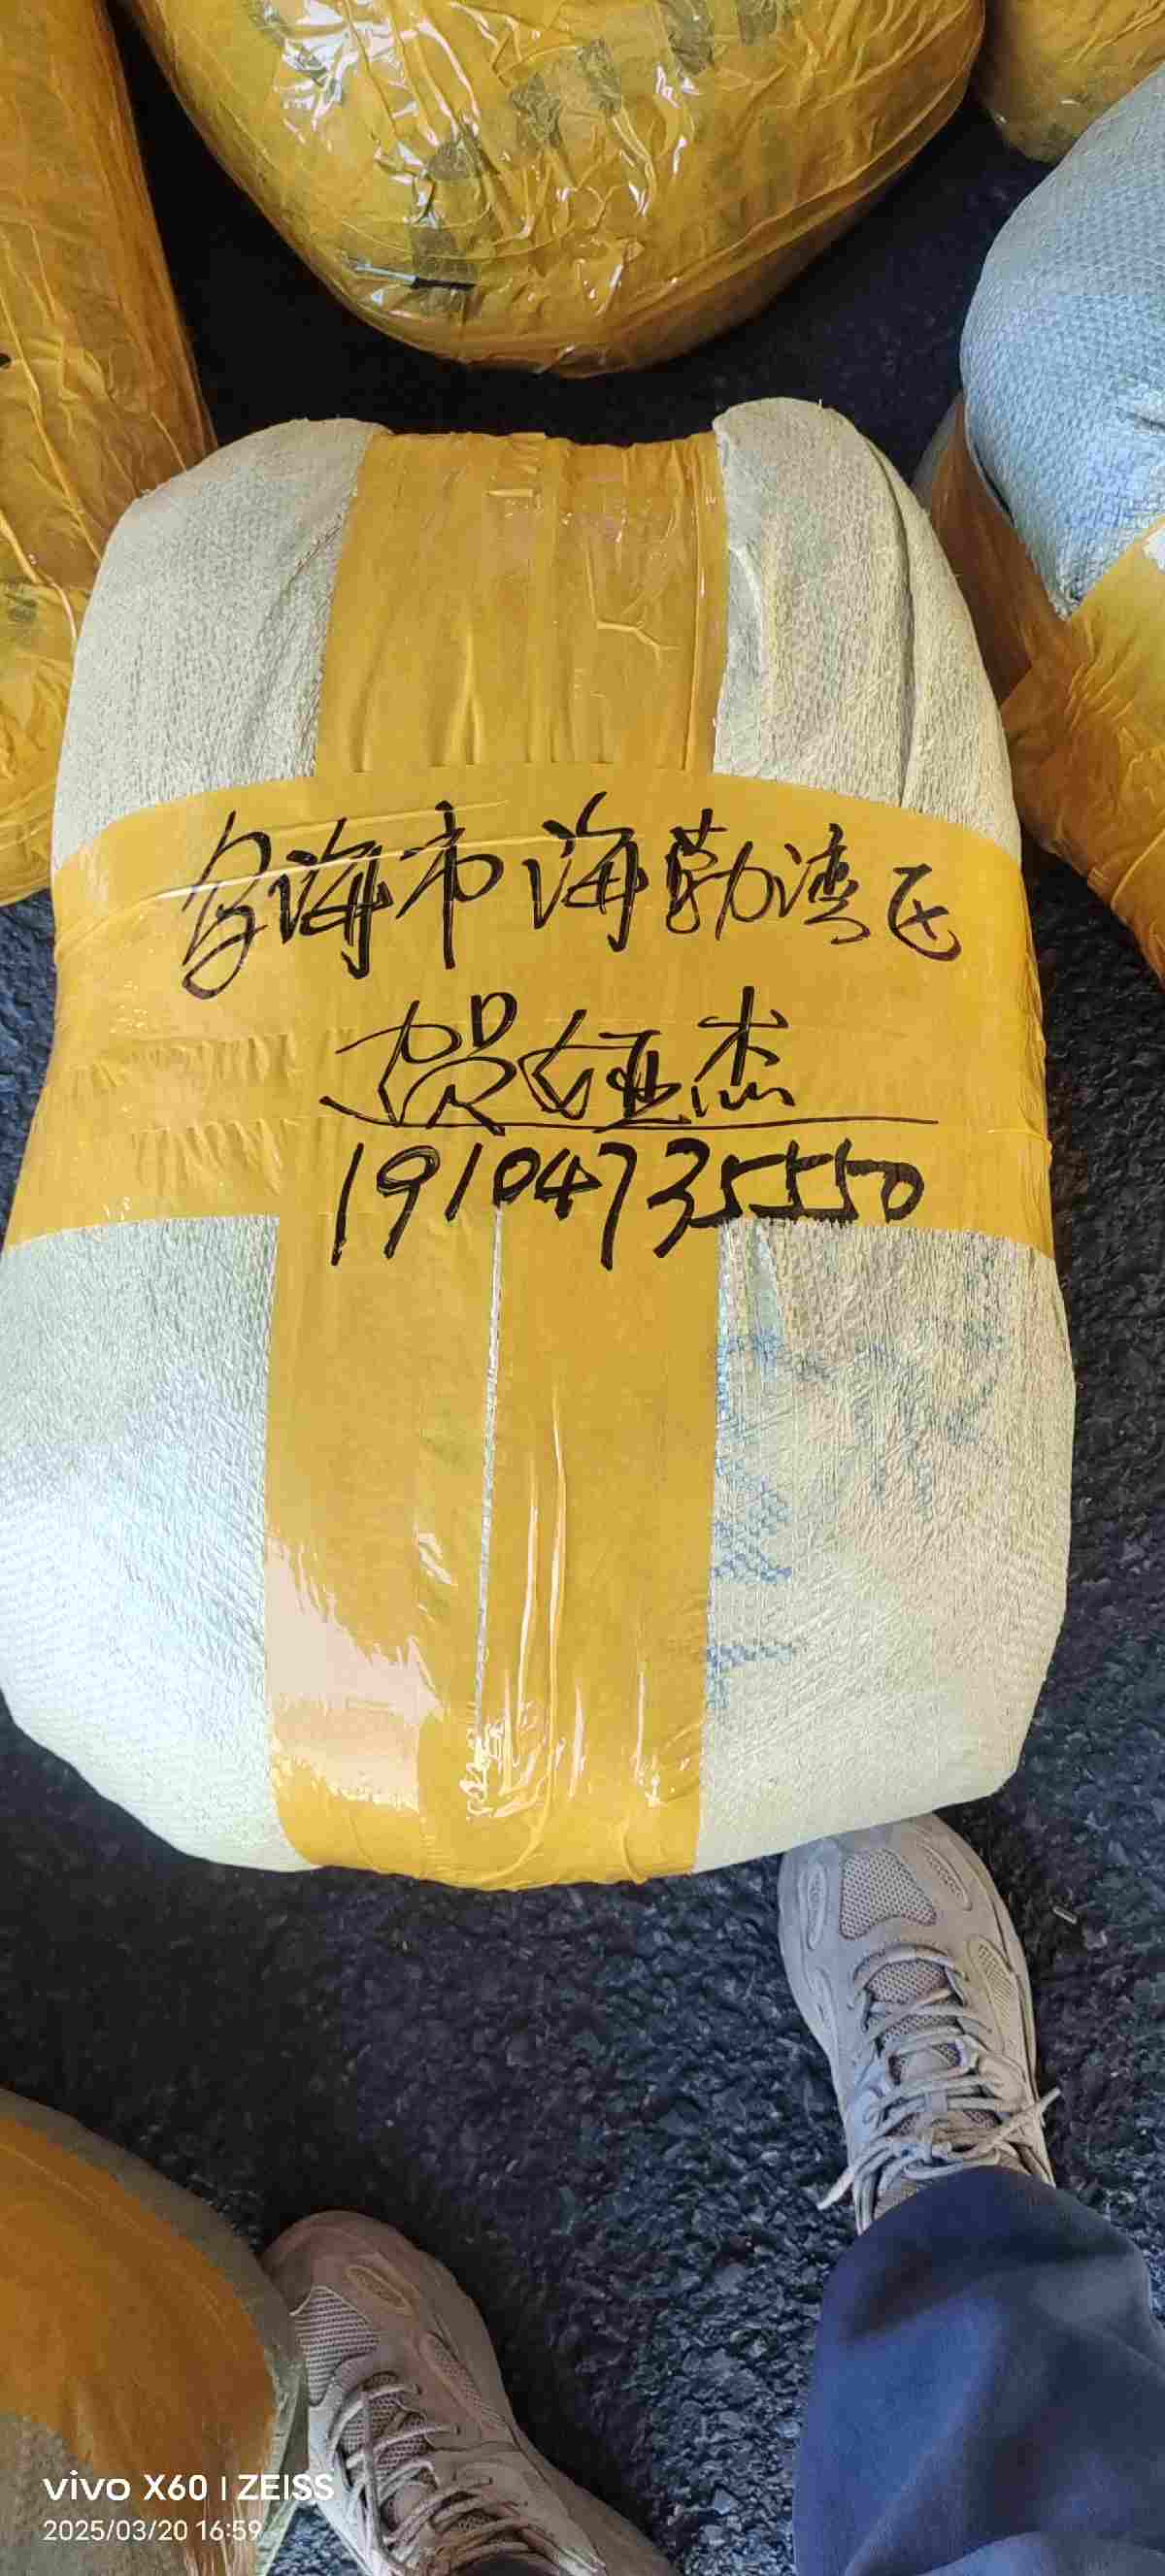 乌海市海勃湾区
贺娅杰
19104735550
vivo X60 | ZEISS
2025/03/20 16:59